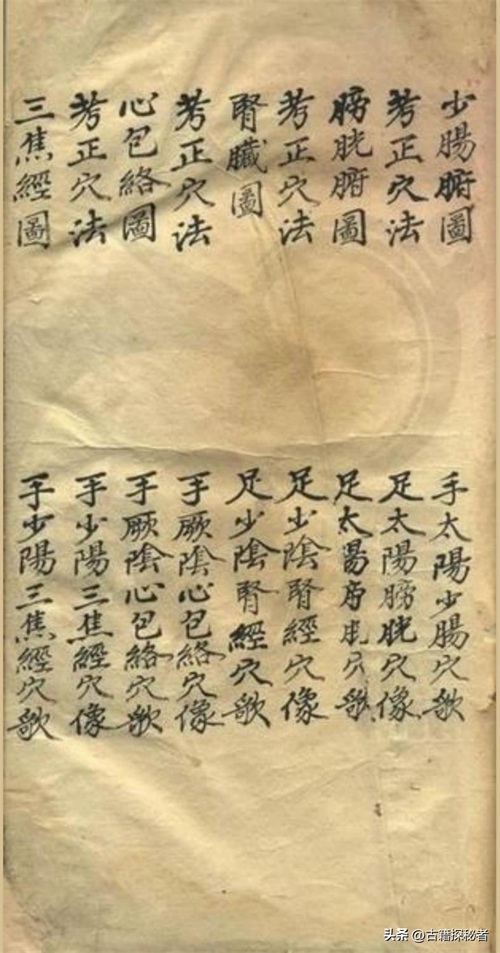 少腸腑圖
手太陽少腸穴歌
考正穴法
足太陽膀胱穴像
膀胱腑圖
足太陽膀胱穴歌
考正穴法
足少陰腎經穴像
腎臟圖
足少陰腎經穴歌
考正穴法
手厥陰心包絡穴像
心包絡圖
手厥陰心包絡穴歌
考正穴法
手少陽三焦經穴像
三焦經圖
手少陽三焦經穴歌
头条 @古籍探秘者